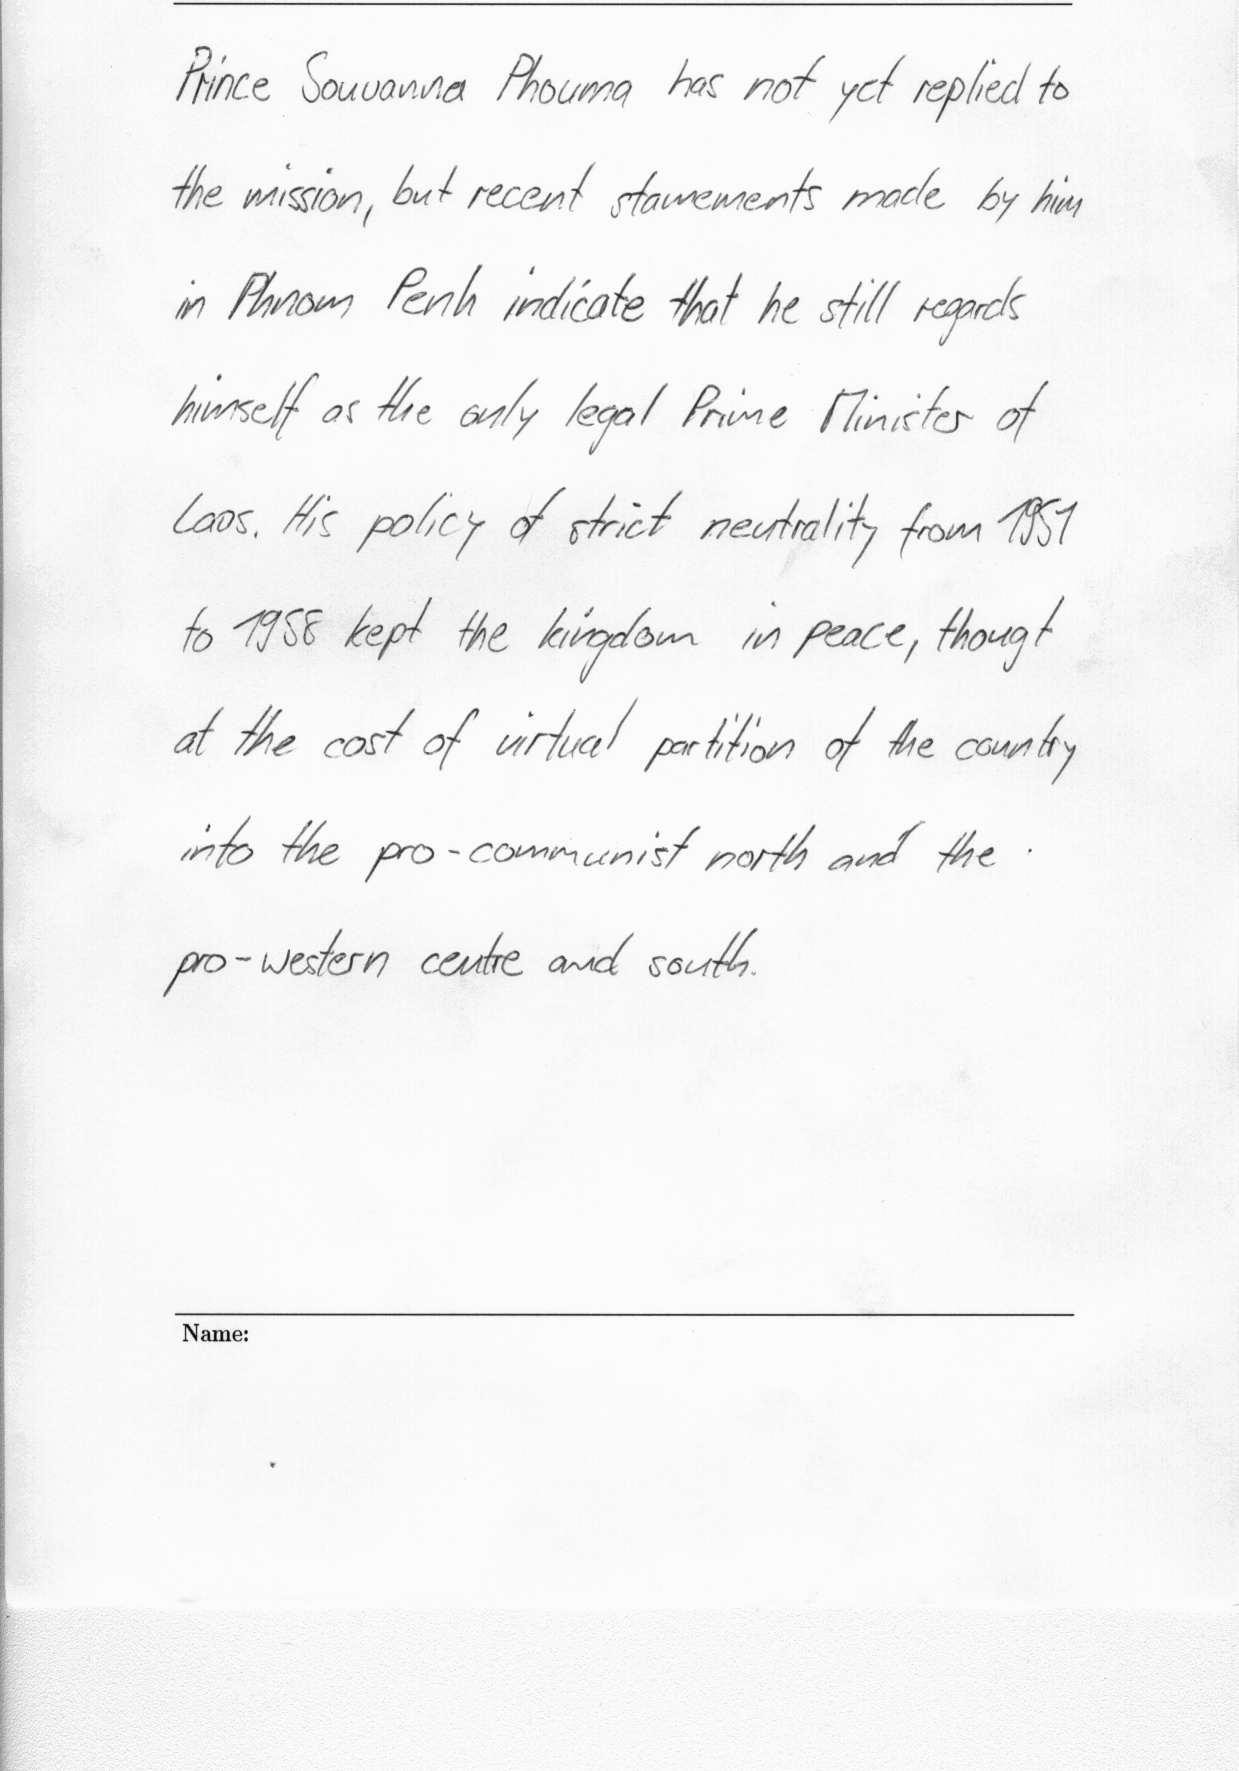 Prince Souvanna Phouma has not yet replied to
the mission, but recent stawements made by him
in Phnom Penh indicate that he still regards
himself as the only legal Prime Minister of
Laos. His policy of strict neutrality from 1951
to 1958 kept the kingdom in peace, thougt
at the cost of virtual partition of the country
into the pro-communist north and the
pro-western centre and south.
Name: